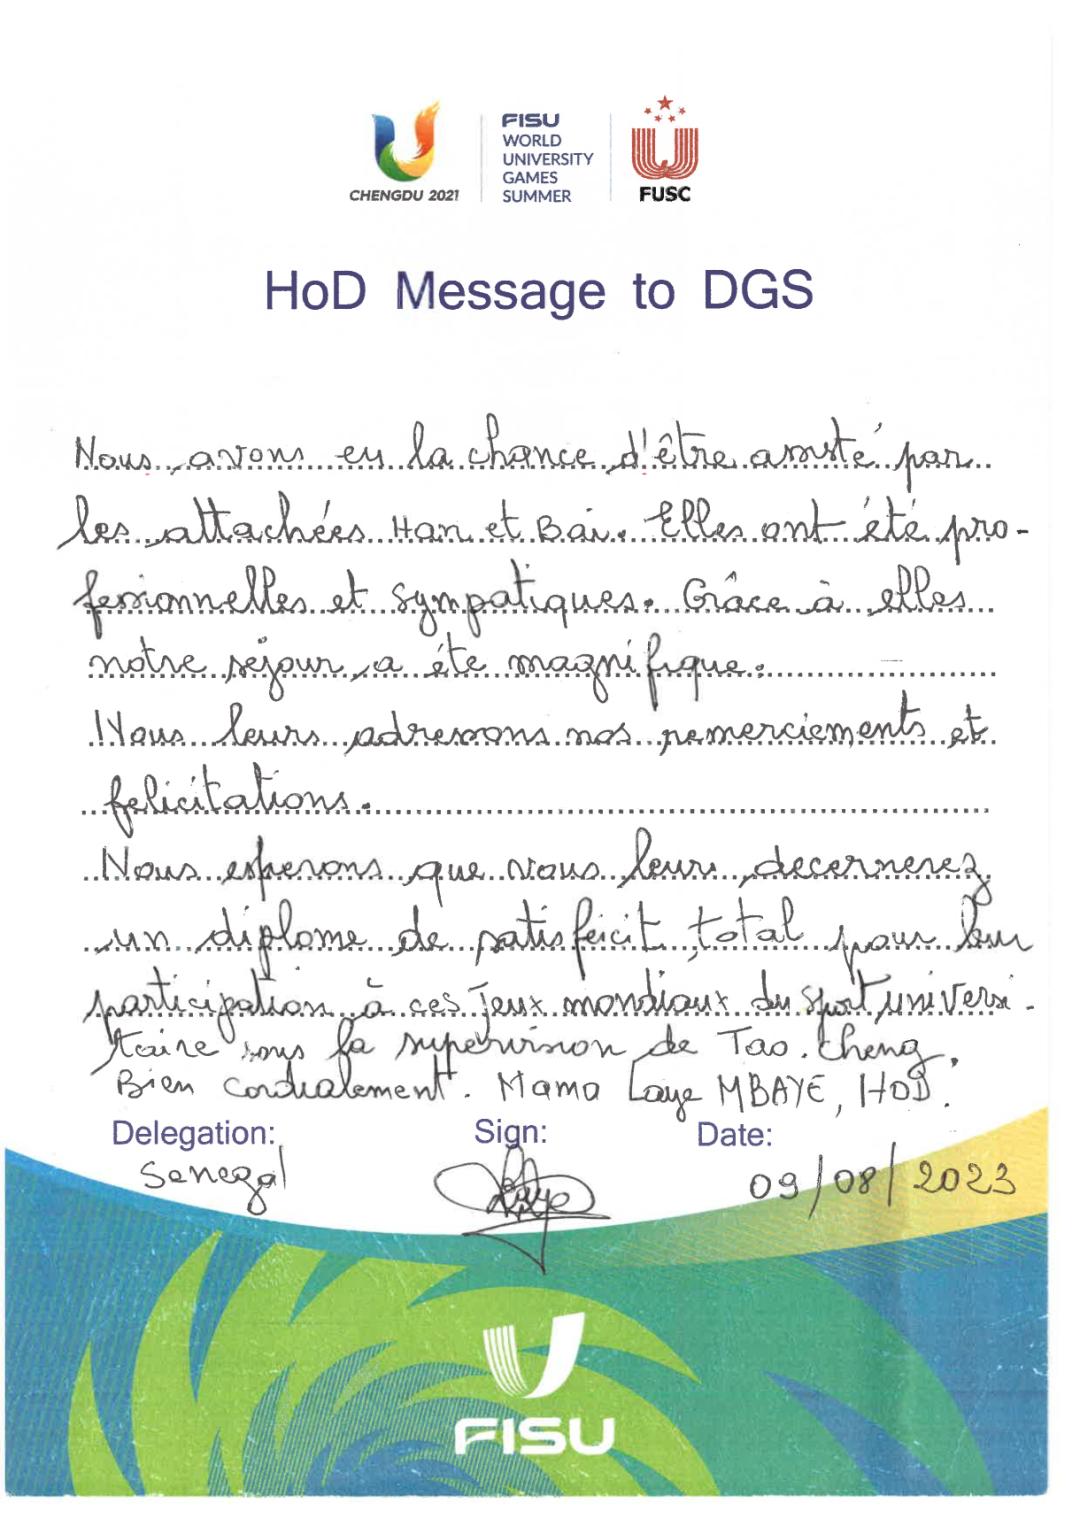 CHENGDU 2021
FISU
WORLD
UNIVERSITY
GAMES
SUMMER
FUSC
HoD Message to DGS
Nous avons eu la chance d'être assisté par
les attachées Han et Bai. Elles ont été pro-
fessionnelles et sympatiques. Grâce à elles
notre séjour a été magnifique.
Nous leurs adressons nos remerciements et
felicitations.
Nous esperons que vous leurs decernerez
un diplome de satisfecit total pour leur
participation à ces Jeux mondiaux du sport universi-
taire sous la supervision de Tao Cheng.
Bien cordialement. Mama Laye MBAYE, HOD.
Delegation:
Sign:
Date:
Senegal
09/08/2023
FISU